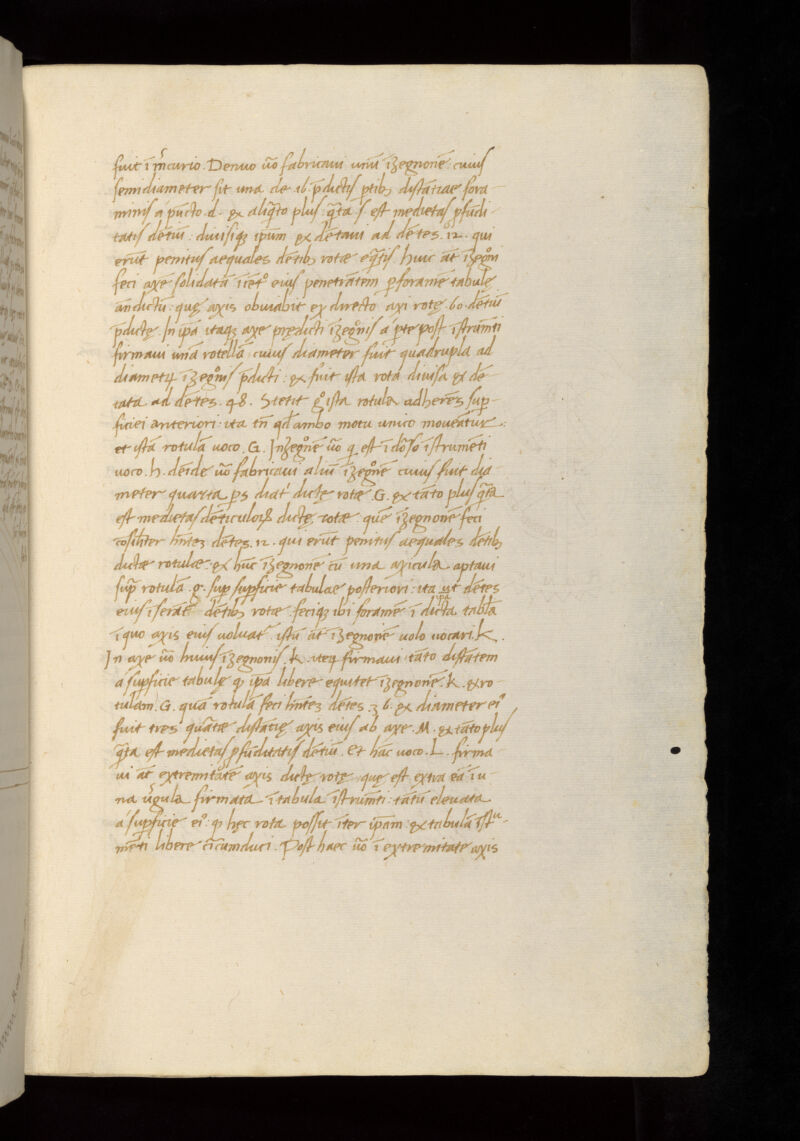 fuit ī m̄curio. Denuo ūo fabricaui unū iȝegnonē: cuius
semidiameter sit una de 16. p̄dictis ptib; distantiae fora-
minis a pūcto .d. et aliq̄to plus: q̄ta .s. est medietas pfūdi-
tatis dētiū: diuisiq; ipsum et dētaui ad dētes .12. qui
erūt penitus aequales dētib; rotæ eq̄tis huic āt iȝegōi
feci axē solidatā ī cētº eius penetrātem p foramē tabulę
an̄dictū: quę axis obuiabit ex directo axi rotę .60. dētiū
p̄dictę. In ipā itaq; axe prędicti iȝegōis a pte post istrūmti
firmaui unā rotellā: cuius diameter fuit quadrupla ad
diametꝝ iȝegōis p̄dicti: et fuit ista rota diuisa et dē-
tata ad dētes .48. Stetit gº ista rotula adherēs sup-
ficiei anteriori: ita tn̄ qd ambo motu unico moueātur:
et istā rotulā uoco .G. Inȝegōē ūo q est ī dorso istrumēti
uoco .h. deīde ūo fabricaui aliū iȝegōē cuius fuit dia
meter quarta ps diat' dictę rotæ .G. et tāto plus q̄ta
est medietas dēticuloꝝ dictę rotæ: quē iȝegnonē feci
cōsiliter hn̄teȝ dētes .12. qui erūt penitus aequales dētib;
dictæ rotulæ: et hūc iȝegnonē cū una axicula aptaui
sup̄ rotulā .g. sup supficie tabulae posteriori: ita ut dētes
eius īserāt ipā dētib; rotæ feciq; ibi foramē ī dicta tabla
ī quo axis eius uoluat' istū āt iȝegnonē uolo uocari .K.
In axe ūo huius iȝegnonis .K. iteꝝ firmaui tāto distātem
a supficie tabulę ꝙ ipā libere equitet iȝegnonē .K. et ro-
tulam .G. quā rotulā feci hn̄teȝ dētes .36. et diameter eiº
fuit tres quātæ distātię axis eius ab axe .M. et tāto plus
q̄ta est medietas pfūditatis dētiū. Et hāc uoco .L. firma-
ui āt extremitātē axis dictę rotę quę est extra eā ī u-
na ūgula firmatā ī tabula istrūmti: tātū eleuata
a supficie eiº: ꝙ hec rota possit iter ipam et tabulā istru-
mēti libere circumduci. Post haec ūo ī extremitate axis